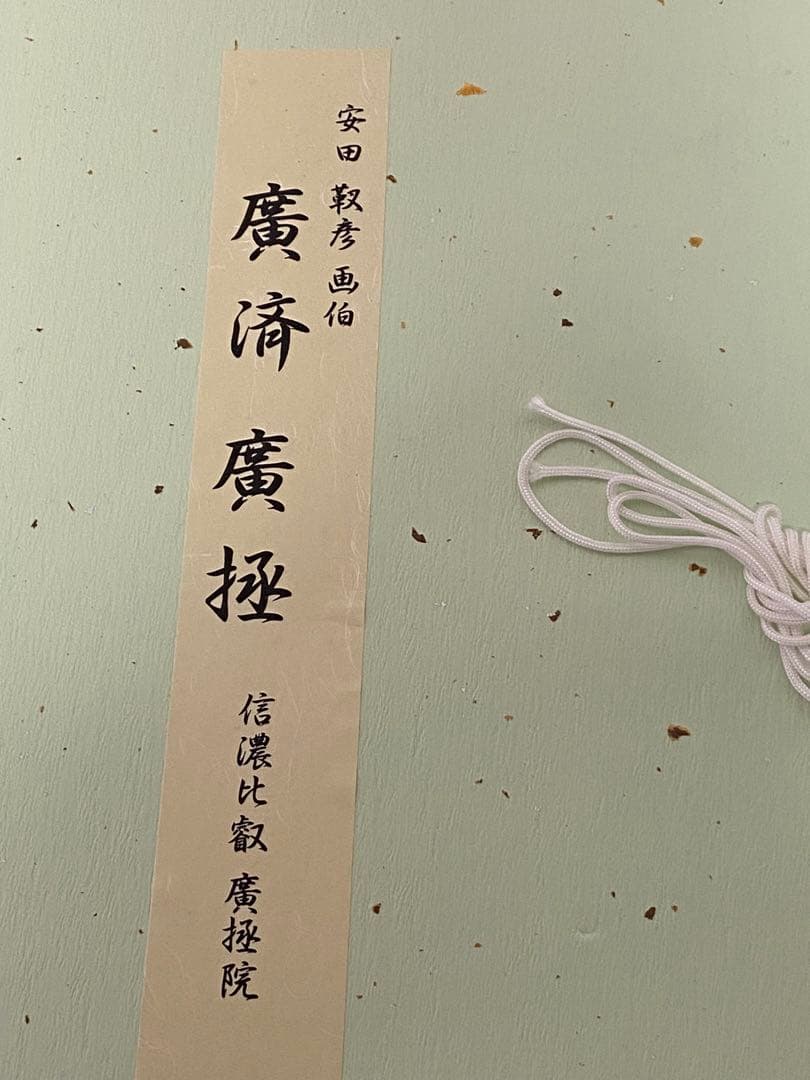 安田 靫彦 画伯
廣済 廣拯
信濃比叡 廣拯院